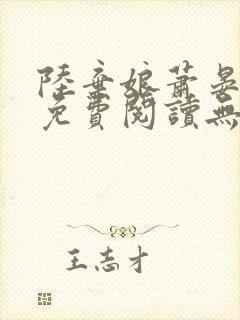 陸棄娘蕭晏
免費閱讀無
王志才